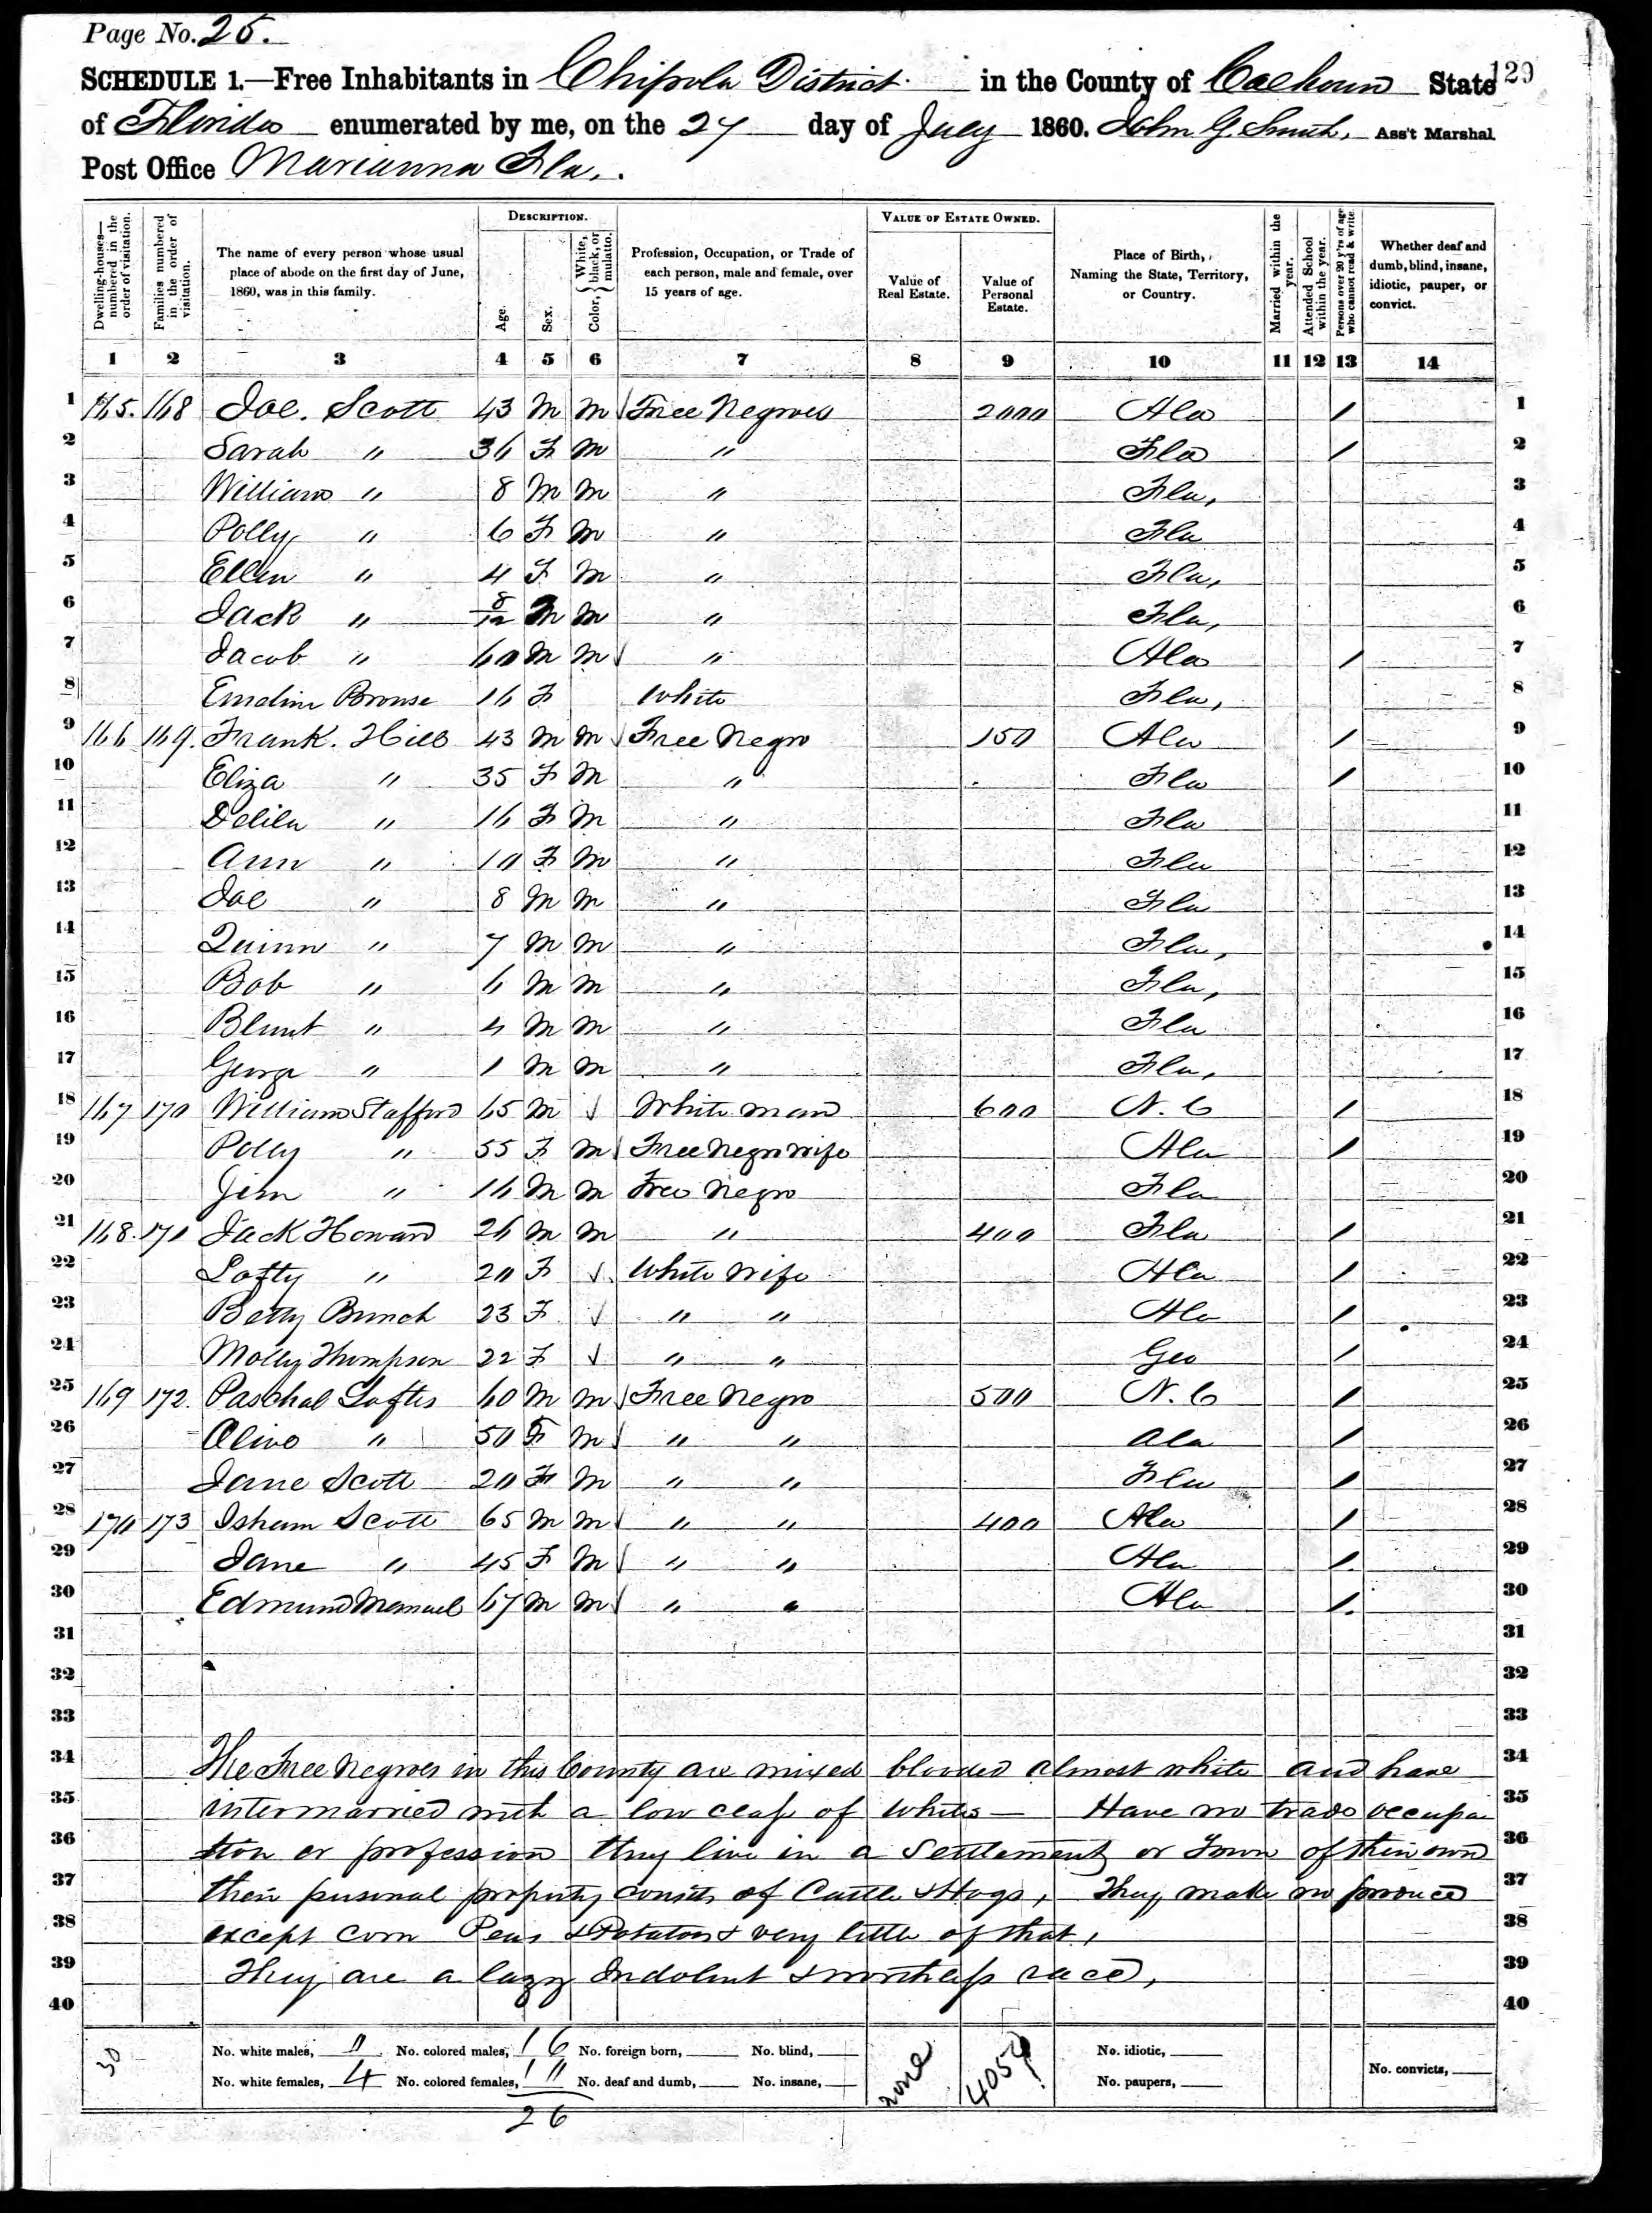 Page No. 25.
129
SCHEDULE 1.—Free Inhabitants in Chipola District in the County of Calhoun State
of Florida enumerated by me, on the 27 day of July 1860. John G. Smith, Ass't Marshal
Post Office Marianna Fla.
Dwelling-houses—numbered in the order of visitation.
Families numbered in the order of visitation.
The name of every person whose usual place of abode on the first day of June, 1860, was in this family.
DESCRIPTION.
Age.
Sex.
Color, { White, black, or mulatto.
Profession, Occupation, or Trade of each person, male and female, over 15 years of age.
VALUE OF ESTATE OWNED.
Value of Real Estate.
Value of Personal Estate.
Place of Birth, Naming the State, Territory, or Country.
Married within the year.
Attended School within the year.
Persons over 20 y'rs of age who cannot read & write.
Whether deaf and dumb, blind, insane, idiotic, pauper, or convict.
1 2 3 4 5 6 7 8 9 10 11 12 13 14
1 165. 168 Joe. Scott 43 M M Free Negroes 2000 Ala / 1
2 Sarah " 36 F M " Fla / 2
3 William " 8 M M " Fla, 3
4 Polly " 6 F M " Fla 4
5 Ellen " 4 F M " Fla, 5
6 Jack " 8/12 M M " Fla, 6
7 Jacob " 60 M M " Ala / 7
8 Emeline 16 F White Fla, 8
9 166 169. Frank. Hill 43 M M Free Negro 150 Ala / 9
10 Eliza " 35 F M " Fla / 10
11 Delila " 16 F M " Fla 11
12 Ann " 10 F M " Fla 12
13 Joe " 8 M M " Fla 13
14 Quinn " 7 M M " Fla, 14
15 Bob " 6 M M " Fla, 15
16 Blunt " 4 M M " Fla 16
17 George " 1 M M " Fla, 17
18 167 170 William Stafford 65 M √ White man 600 N. C / 18
19 Polly " 55 F M Free Negro wife Ala / 19
20 Jim " 16 M M Free Negro Fla 20
21 168. 171 Jack Howard 26 M M " 400 Fla / 21
22 Lofty " 20 F √ White wife Ala / 22
23 Betty Bunch 23 F √ " " Ala / 23
24 Molly Thompson 22 F √ " " Geo / 24
25 169 172. Paschal Loftis 60 M M Free Negro 500 N. C / 25
26 Olive " 50 F M " " Ala / 26
27 Jane Scott 20 F M " " Fla / 27
28 170 173 Isham Scott 65 M M " " 400 Ala / 28
29 Jane " 45 F M " " Ala / 29
30 Edmund Manuel 67 M M " " Ala / 30
31 31
32 32
33 33
34 The Free Negroes in this County are mixed blooded almost white and have 34
35 intermarried with a low class of whites — Have no trade occupa 35
36 tion or profession they live in a Settlement or Town of their own 36
37 their personal property consists of Cattle & Hogs, They make no produce 37
38 except Corn Peas & Potatoes & very little of that, 38
39 They are a lazy Indolent & worthless race, 39
40 40
30
No. white males, 0 No. colored males, 16 No. foreign born, No. blind, none 4050 No. idiotic,
No. white females, 4 No. colored females, 10 No. deaf and dumb, No. insane, No. paupers, No. convicts,
26